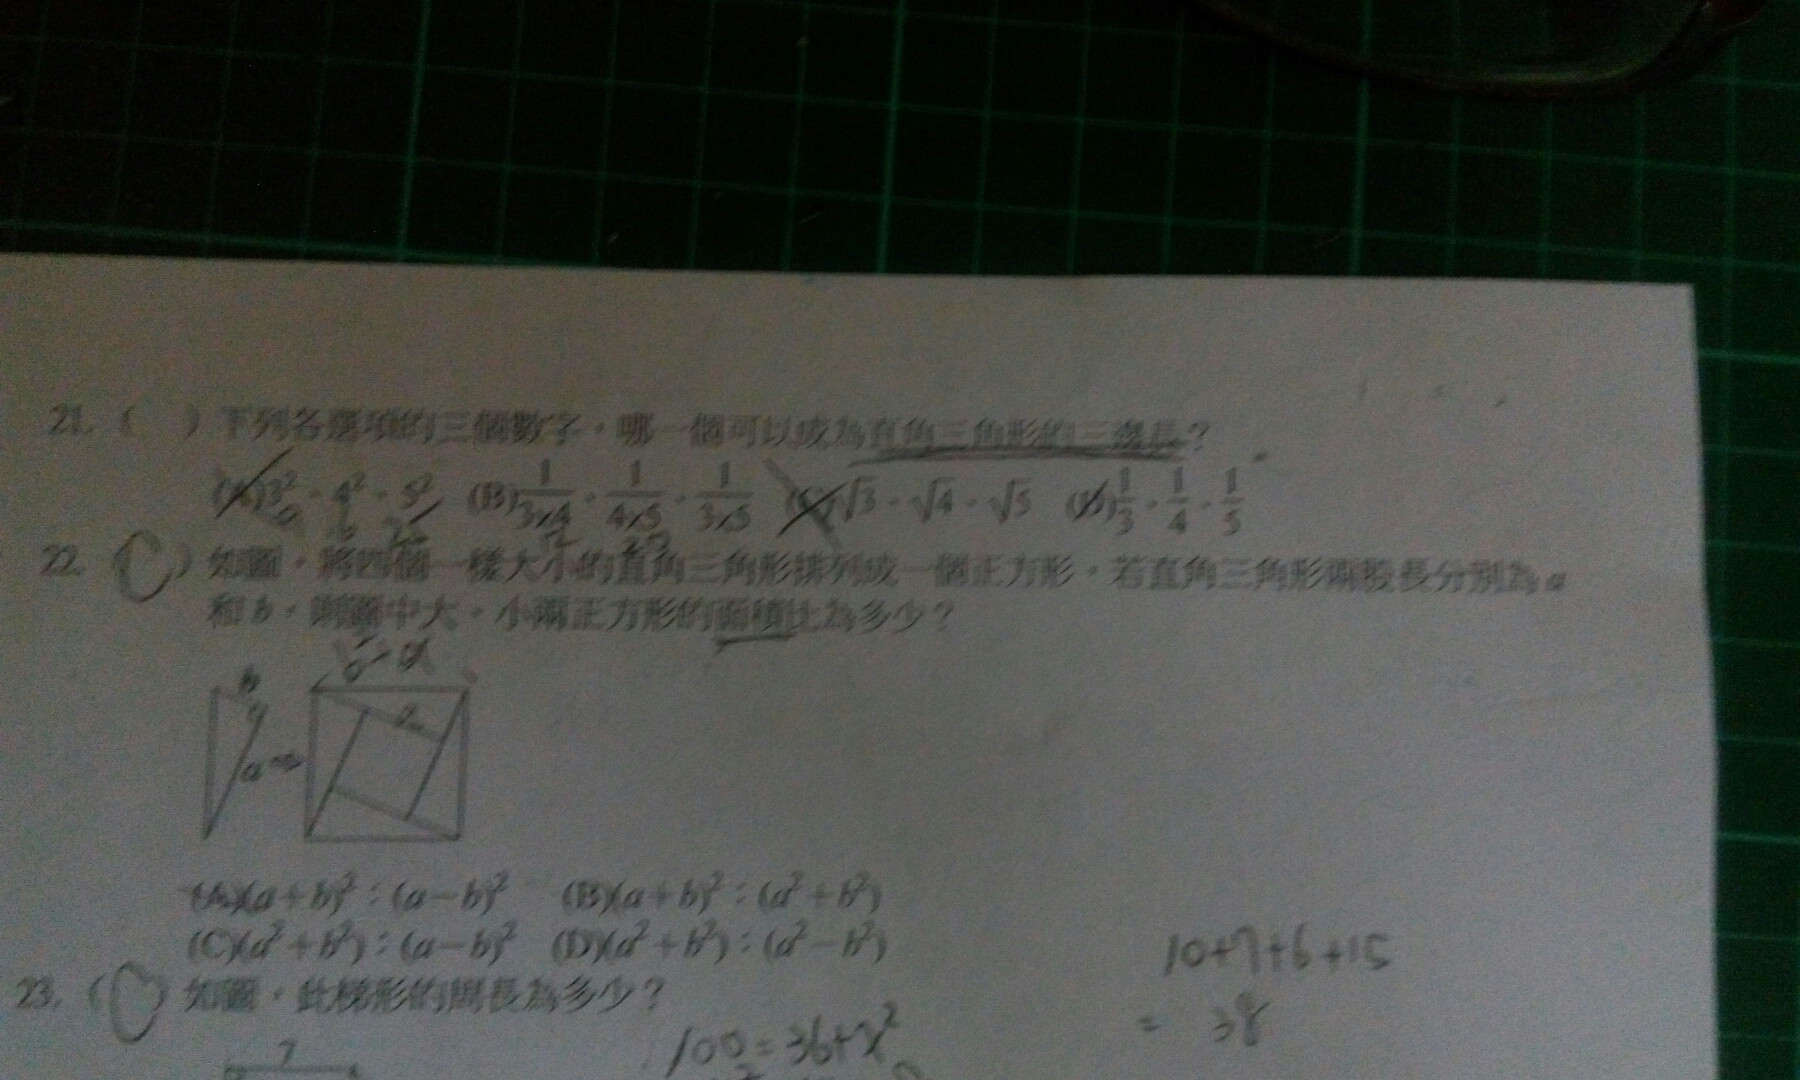 21. (　) 下列各選項的三個數字，哪一個可以成為直角三角形的三邊長？
(A)3²、4²、5² (B)1/(3×4)、1/(4×5)、1/(3×5) (C)√3、√4、√5 (D)1/3、1/4、1/5
9 16 25 12 20
22. (C) 如圖，將四個一樣大小的直角三角形排列成一個正方形，若直角三角形兩股長分別為a
和b，則圖中大、小兩正方形的面積比為多少？
b-a
b
a
a
(A)(a+b)²：(a-b)² (B)(a+b)²：(a²+b²)
(C)(a²+b²)：(a-b)² (D)(a²+b²)：(a²-b²)
10+7+6+15
= 38
23. (　) 如圖，此梯形的周長為多少？
100=36+x²
7